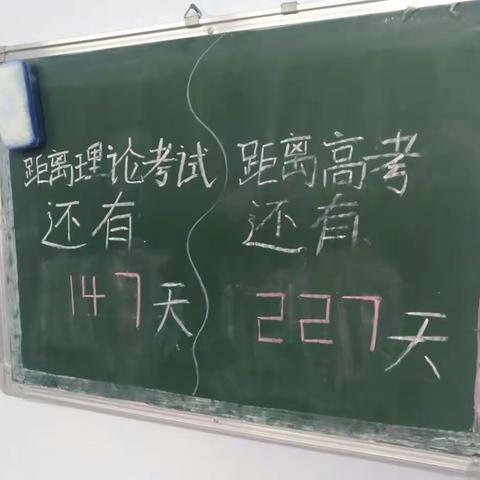 距离理论考试
还有
147天
距离高考
还有
227天